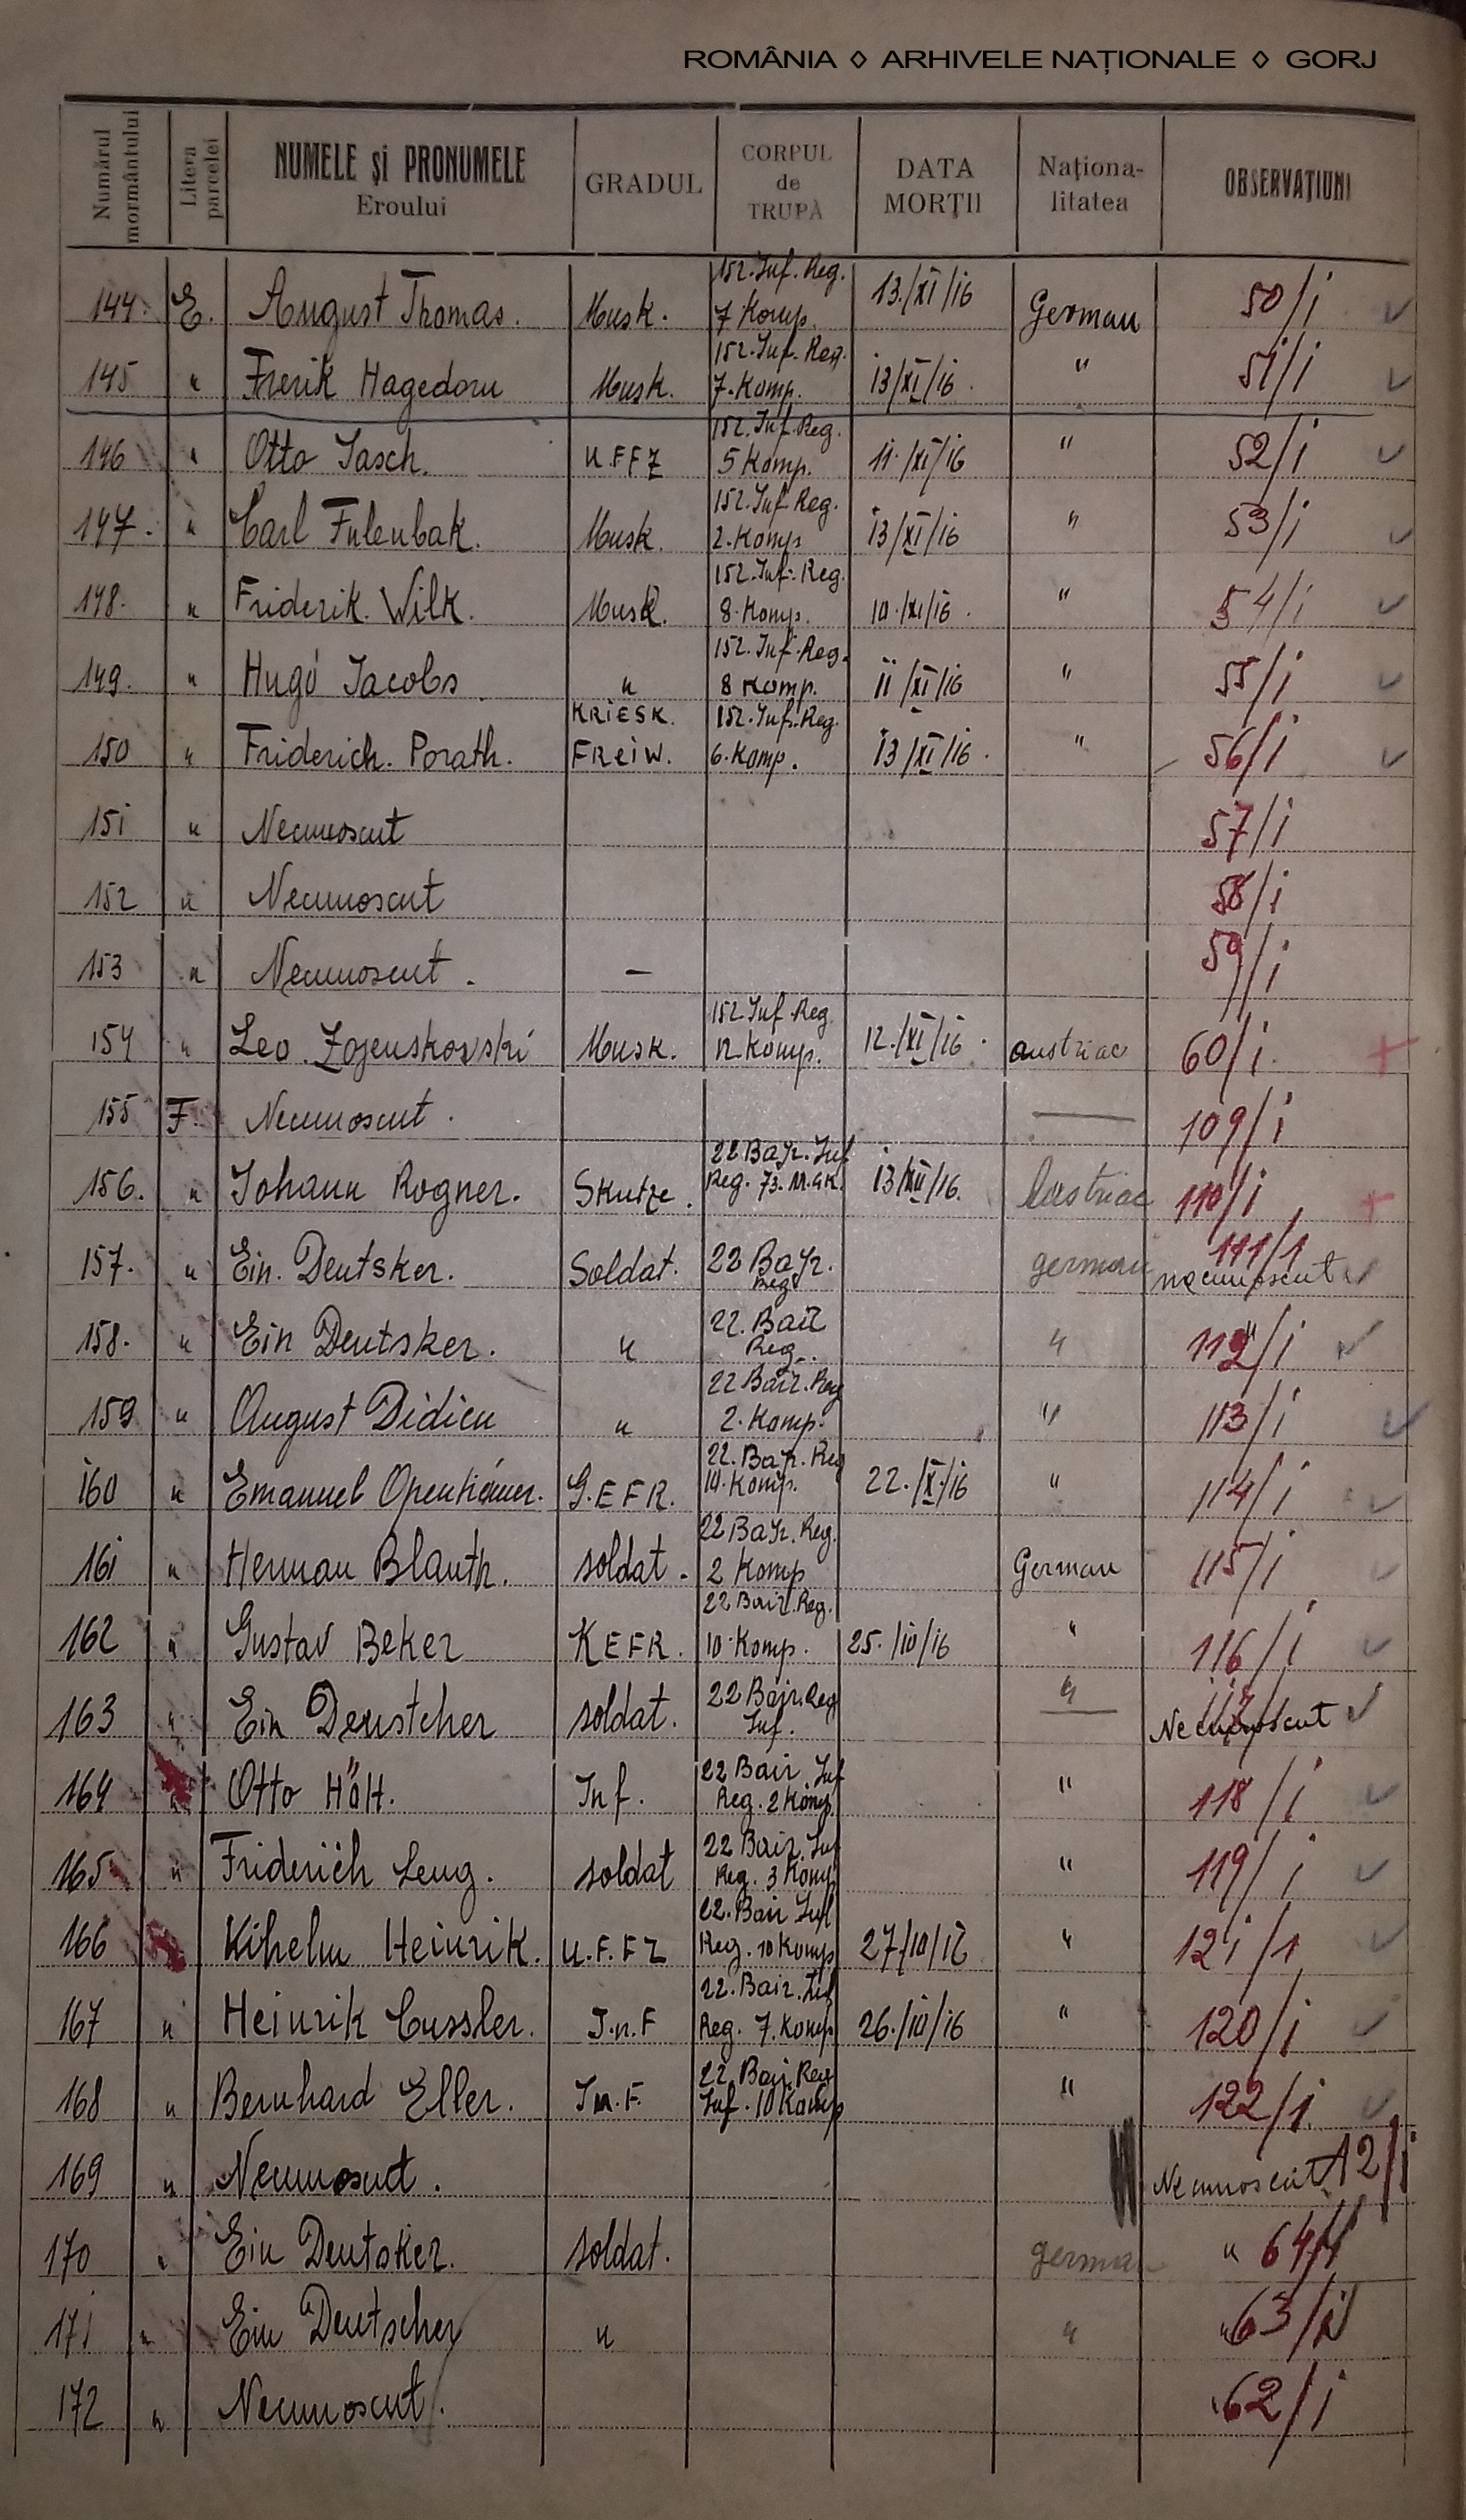 ROMÂNIA ◊ ARHIVELE NAȚIONALE ◊ GORJ
Numărul mormântului Litera parcelei NUMELE și PRONUMELE Eroului GRADUL CORPUL de TRUPĂ DATA MORȚII Naționa-litatea OBSERVAȚIUNI
144. E. August Thomas. Musk. 152. Inf. Reg. 7 Komp. 13./XI/16 German 50/i
145 " Frerik Hagedorn Musk. 152. Inf. Reg. 7. Komp. 13/XI/16. " 51/i
146 " Otto Jasch. U.FFZ 152. Inf. Reg. 5 Komp. 11./XI/16 " 52/i
147. " Carl Fulenbak. Musk. 152. Inf. Reg. 2. Komp 13/XI/16 " 53/i
148. " Friderik. Wilk. Musk. 152. Inf. Reg. 8. Komp. 10./XI/16. " 54/i
149. " Hugó Jacobs " 152. Inf. Reg. 8 Komp. 11/XI/16 " 55/i
150 " Friderich. Porath. KRIESK. FREIW. 152. Inf. Reg. 6. Komp. 13/XI/16. " 56/i
151 " Necunoscut 57/i
152 " Necunoscut 58/i
153 " Necunoscut. — 59/i
154 " Leo. Musk. 152. Inf Reg 12. Komp. 12./XI/16. austriac 60/i. +
155 F. Necunoscut. — 109/i
156. " Johann Rogner. Skutze. 22 Bayr. Inf Reg. 73. M.GK. 13/XII/16. austriac 110/i +
157. " Ein. Deutsker. Soldat. 22 Bayr. Reg. german 111/1 necunoscut
158. " Ein Deutsker. " 22. Bair Reg. " 112/i
159 " August Didien " 22 Bair. Reg 2. Komp. " 113/i
160 " Emanuel G.EFR. 22. Bayr. Reg 10. Komp. 22./X/16 " 114/i
161 " Herman Blauth. soldat. 22 Bayr. Reg. 2 Komp German 115/i
162 " Gustav Beker KEFR. 22 Bair. Reg. 10. Komp. 25./10/16 " 116/i
163 " Ein Deustcher soldat. 22 Bajr. Reg Inf. " Necunoscut
164 " Otto Hölt. Inf. 22 Bair Inf Reg. 2 Komp. " 118/i
165 " Friderich Leug. soldat 22 Bair. Inf Reg. 3 Komp " 119/i
166 " Kihelm Heinrik. U.F.FZ 22. Bair Inf Reg. 10 Komp 27/10/16 " 121/1
167 " Heinrik Cussler. J.n.F 22. Bair. Inf Reg. 7. Komp 26./10/16 " 120/i
168 " Bernhard Eller. In.F. 22 Bair. Reg Inf. 10 Komp " 122/i.
169 " Necunoscut. Necunoscut A2/i
170 " Ein Deutsker. soldat. german " 64/i
171 " Ein Deutscher " " " 63/i
172 " Necunoscut. " 62/i